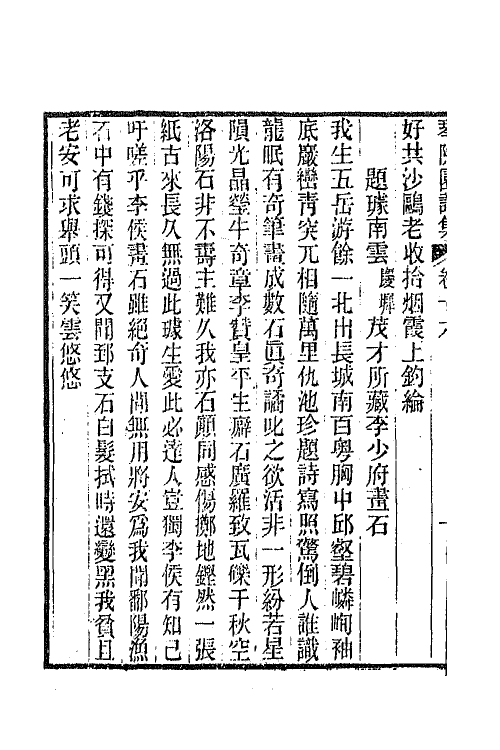 好共沙鷗老收拾烟霞上釣綸
題璩南雲慶騨茂才所藏李少府畫石
我生五岳游餘一北出長城南百粤胸中邱壑碧嶙峋袖
底巖巒靑突兀相隨萬里仇池珍題詩寫照驚倒人誰識
龍眠有奇筆畫成數石眞奇譎叱之欲活非一形紛若星
隕光晶瑩牛奇章李贊皇平生癖石廣羅致瓦礫千秋空
洛陽石非不壽主難久我亦石顚同感傷擲地鏗然一張
紙古來長久無過此璩生愛此必達人豈獨李侯有知己
吁嗟乎李侯畫石雖絕奇人間無用將安爲我聞鄱陽漁
石中有錢探可得又聞郅支石白髮拭時還變黑我貧且
老安可求舉頭一笑雲悠悠